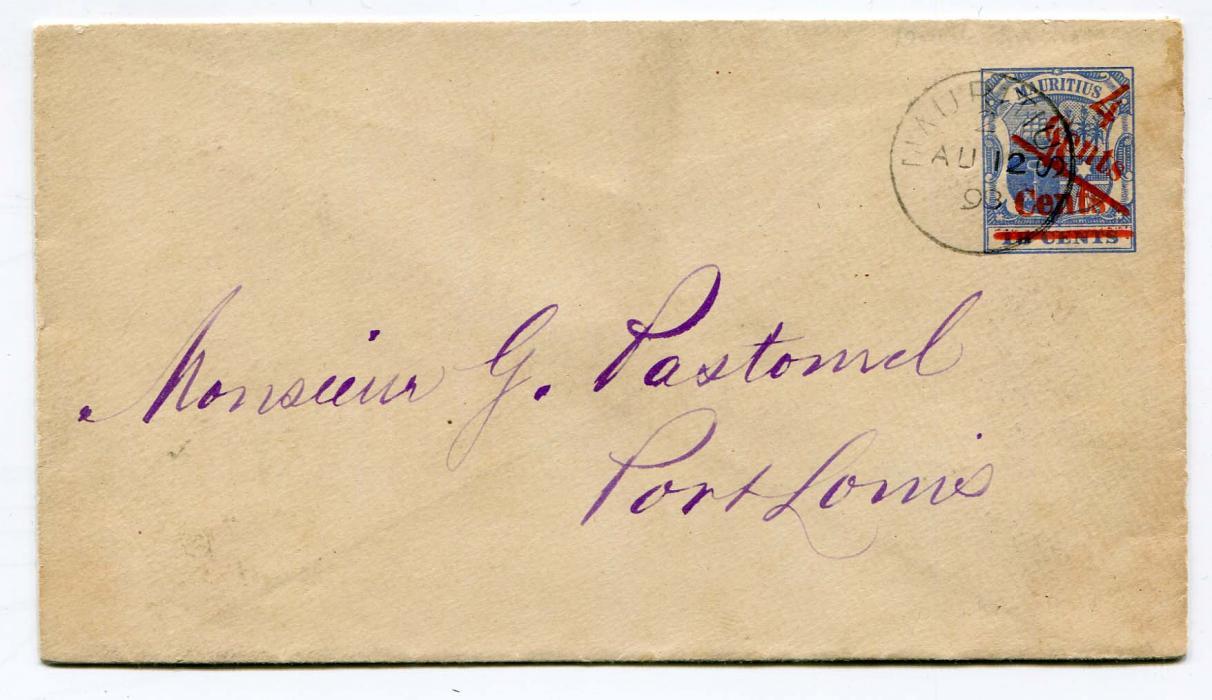 MAURITIUS
4
Cents
Cents
18 CENTS
MAURITIUS
AU 12
93
Monsieur G. Pastourel
Port Louis